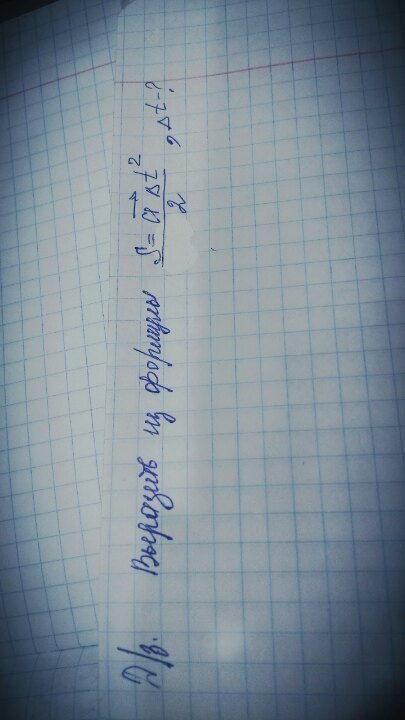 Д/з. Выразить из формулы S = a⃗ Δt² / 2, Δt-?